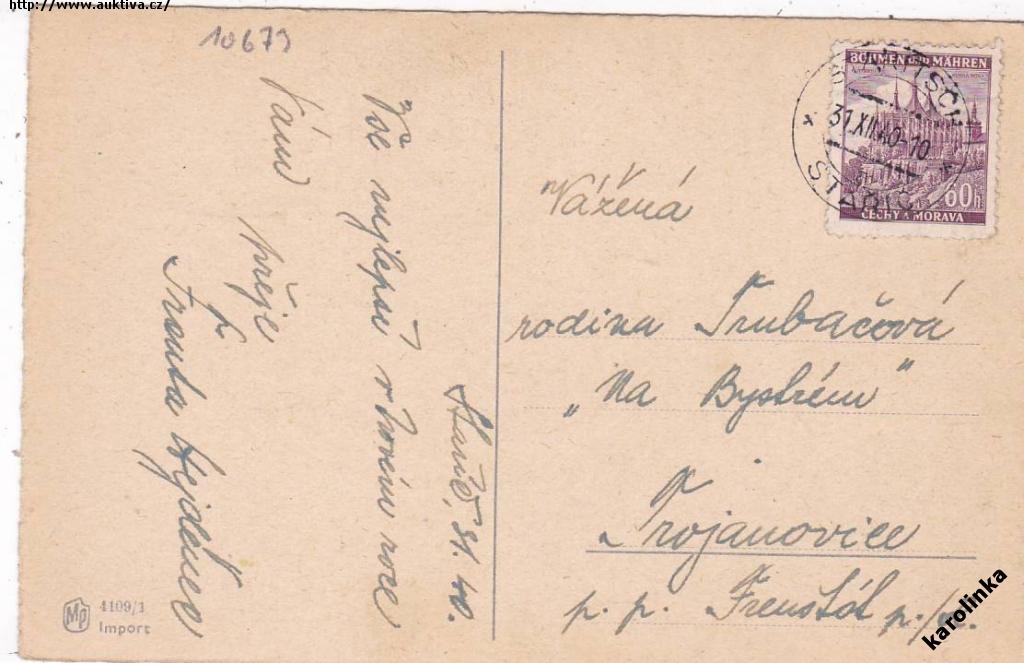 http://www.auktiva.cz/
10679
Stařič, 31. 40.
Vše nejlepší v Novém roce
Vám
přeje
Franta
BÖHMEN und MÄHREN
31.XII.40-10
STAŘIČ
60h
ČECHY A MORAVA
Vážená
rodina Trubačová
„Na Bystrém"
Trojanovice
p. p. Frenštát p./R.
MP
4109/1
Import
karolinka